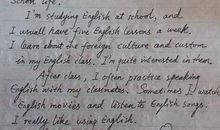 School life
I'm studying English at school, and
I usually have five English lessons a week.
I learn about the foreign culture and custom
in my English class. I'm quite interested in them.
After class, I often practice speaking
English with my classmates. Sometimes I watch
English movies and listen to English songs.
I really like using English.